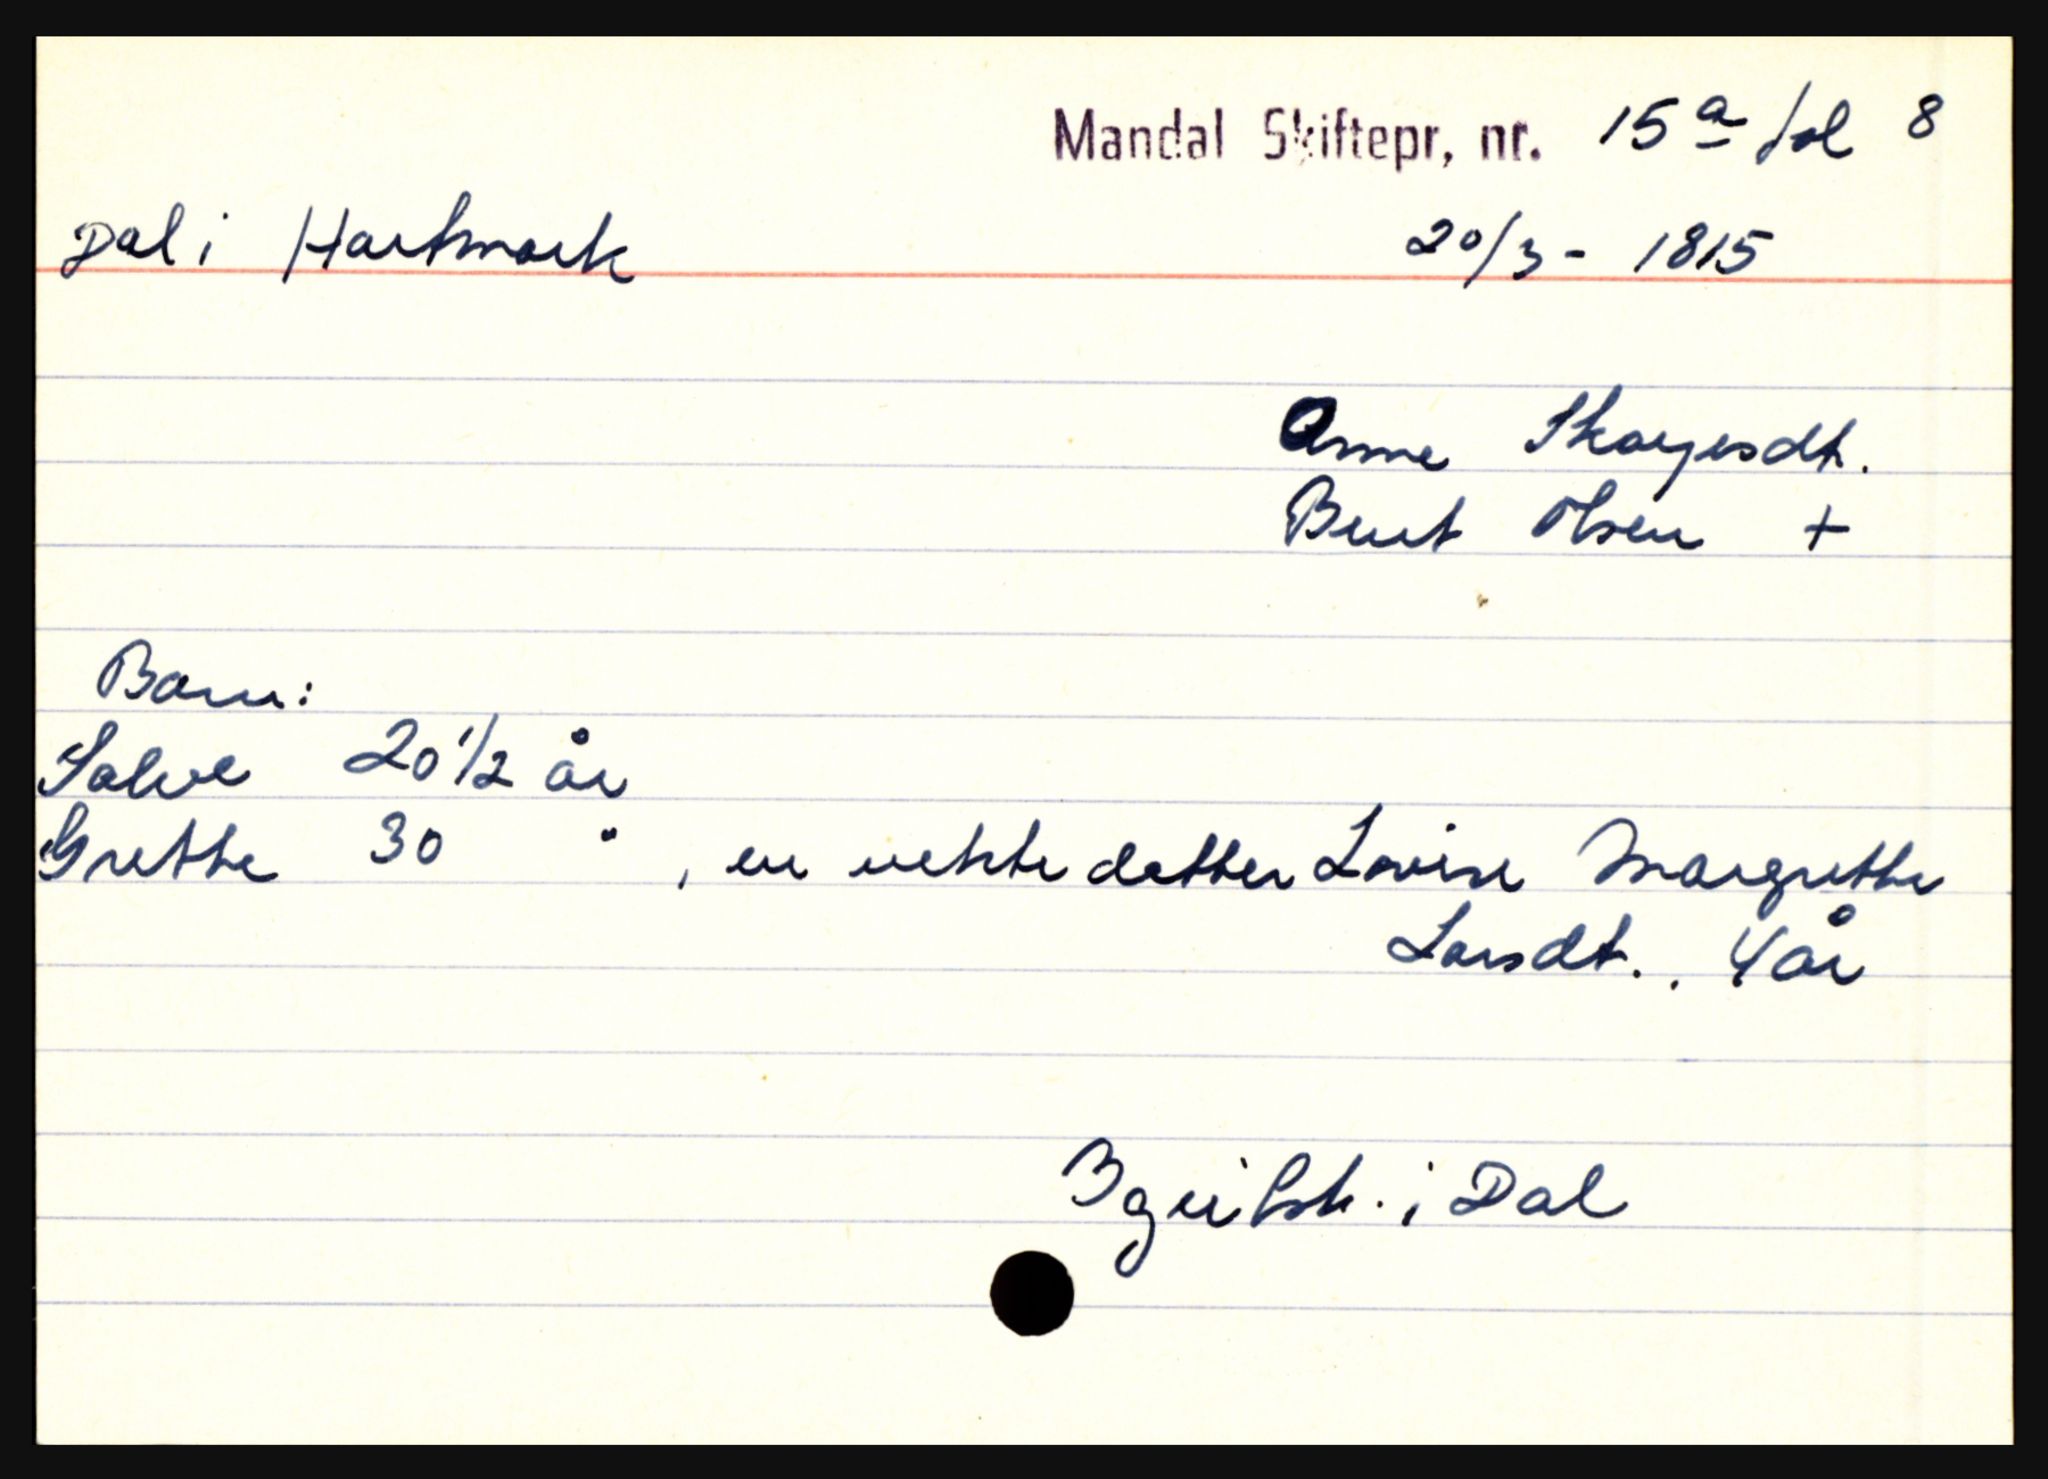 Mandal Skiftepr, nr. 15a fol 8
Dal i Hartmark 20/3 - 1815
Anne Skoyesdt.
Bent Olsen +
Barn:
Salve 20 1/2 år
Grethe 30 " , en uekte datter Lovise Margrethe
Larsdt.. 4 år
3 gei i Dal